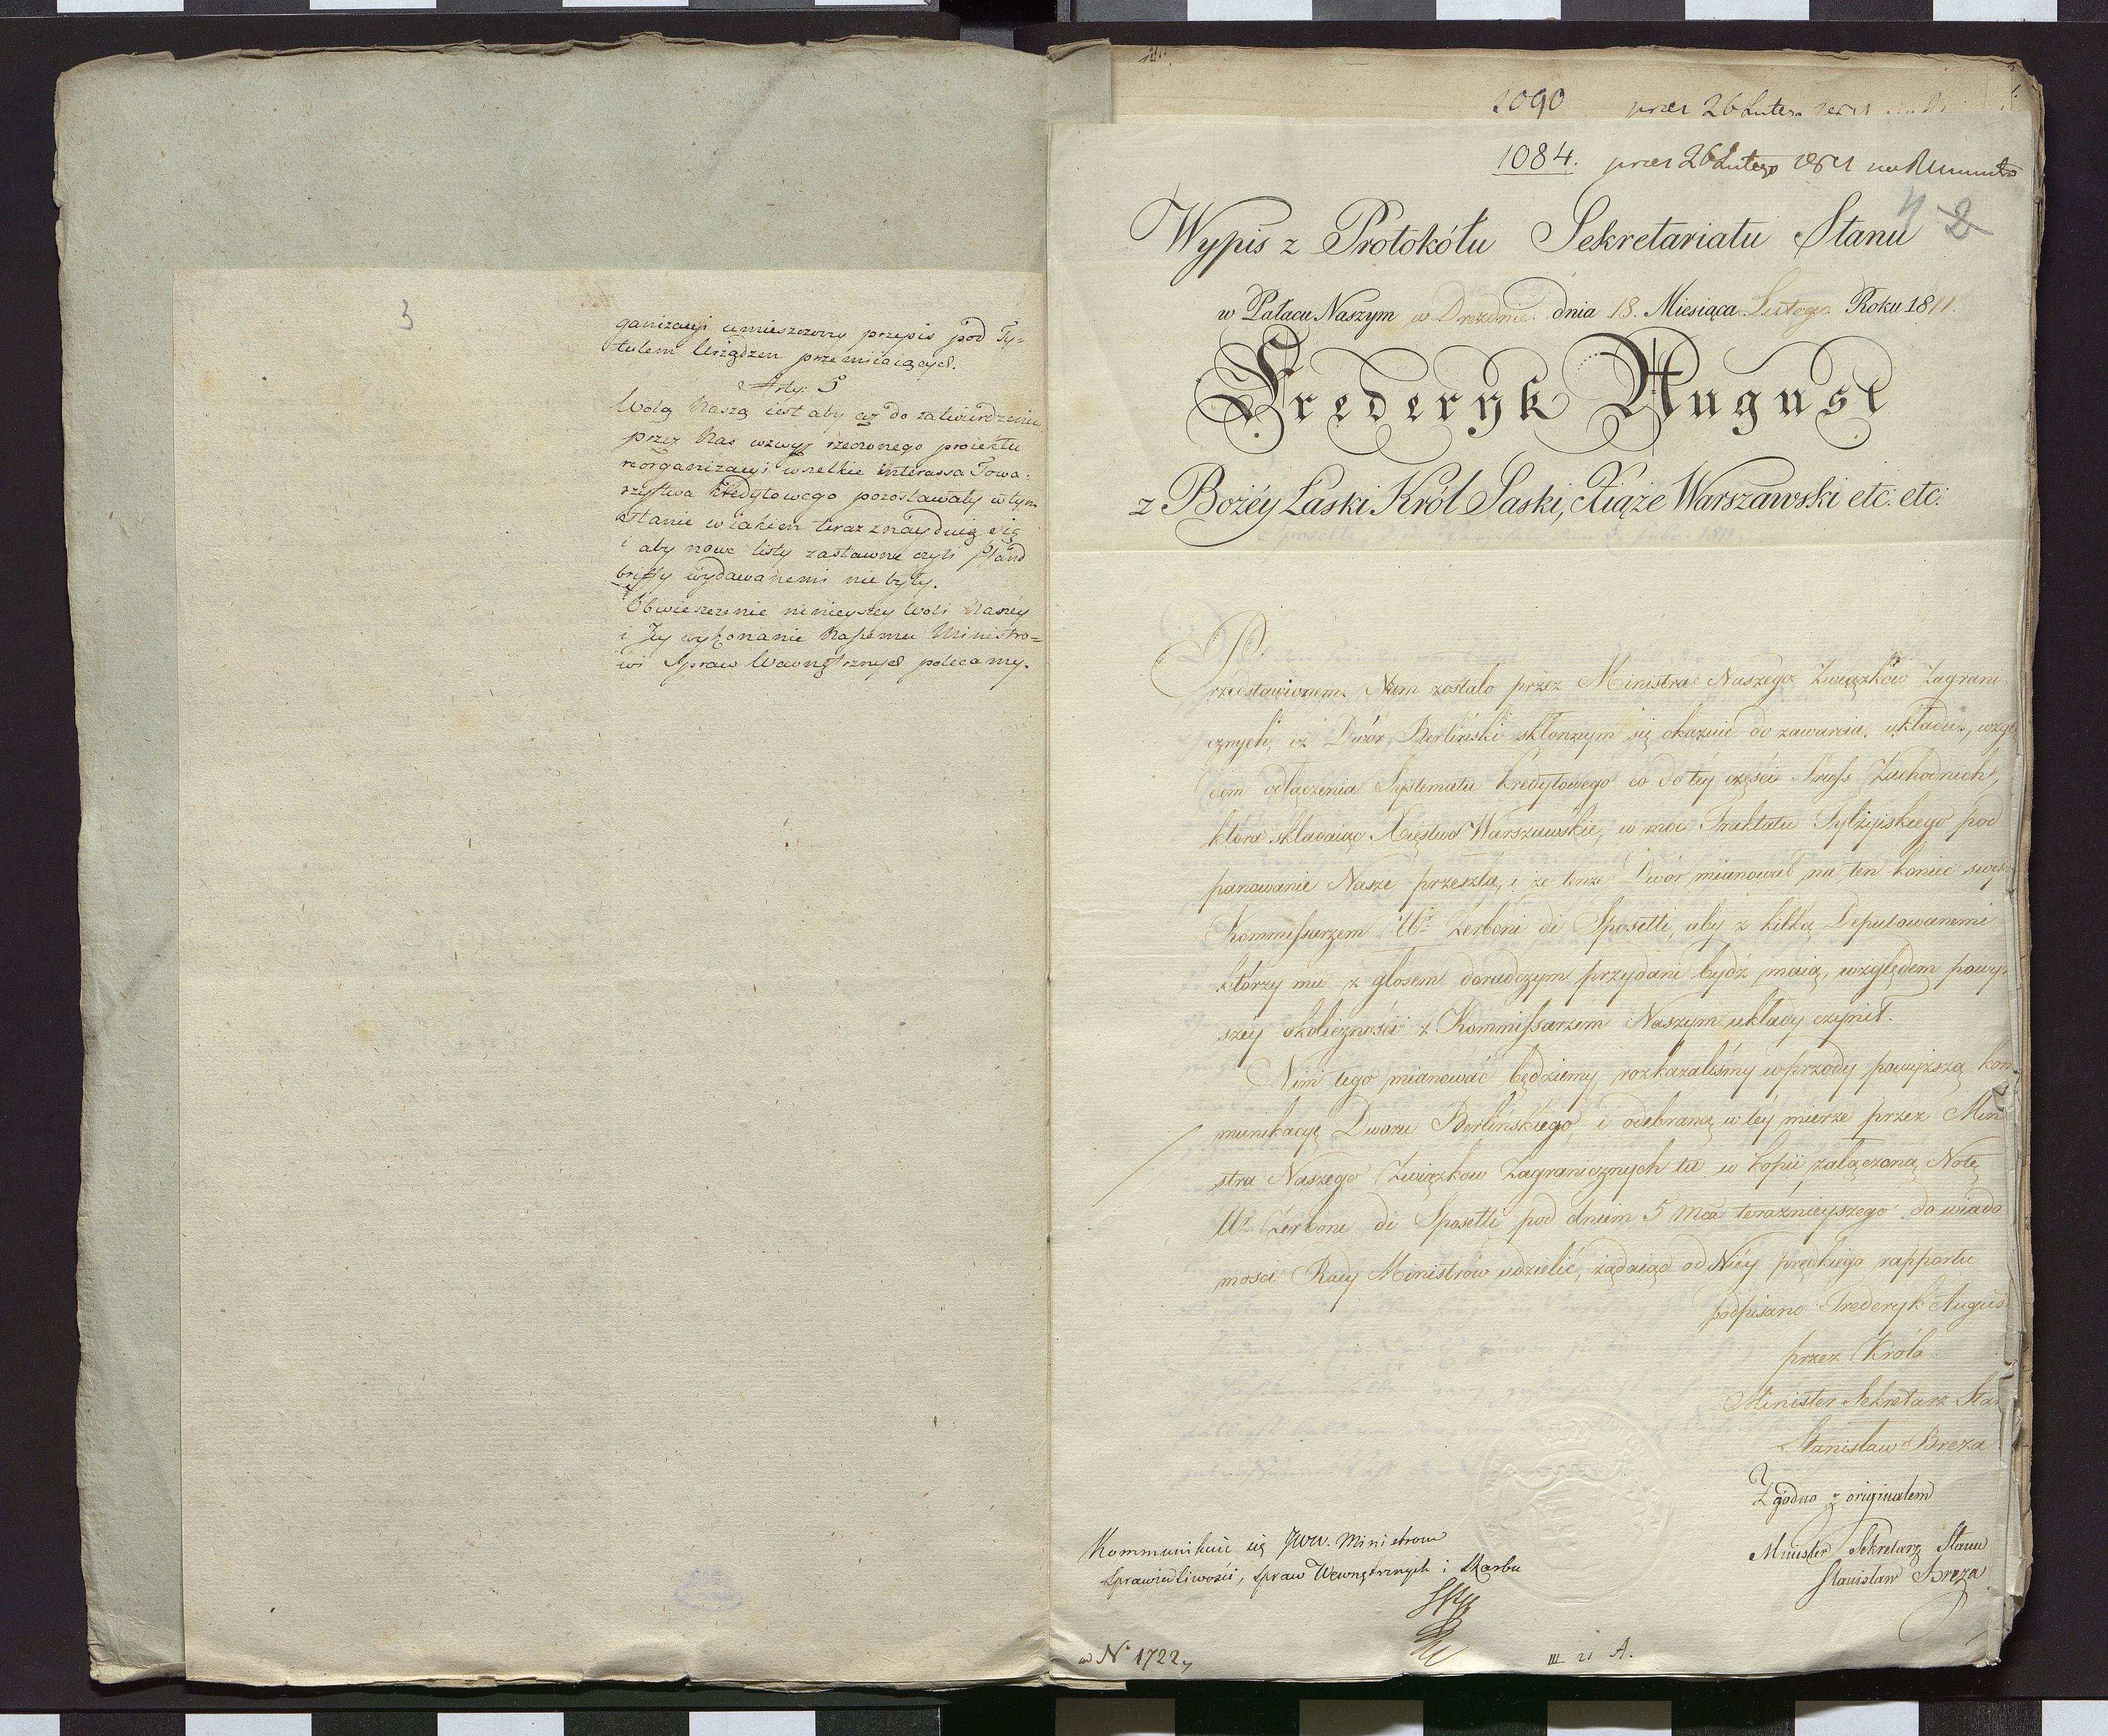 3
ganizacyi umieszczony przepis pod Ty=
tułem Urządzen przemiiaiących.
Arty: 5
Wolą Naszą iest aby aż do zatwierdzenia
przez Nas wzwyż rzeczonego proiektu
reorganizacyi wszelkie interessa Towa:
rzystwa Kredytowego pozostawały w tym
stanie w iakiem teraz znayduią się
i aby nowe listy zastawne czyli Pfand
briffy wydawanemi nie były.
Obwieszczenie ninieyszey Woli Naszey
i Jey wykonanie Naszemu Ministro=
wi Spraw Wewnętrznych polecamy.
1090 prez 26 Lutego 1811
1084. prez 26 Lutego 1811
4 2
Wypis z Protokółu Sekretariatu Stanu
w Pałacu Naszym w Dreźnie dnia 18. Miesiąca Lutego Roku 1811.
Frederyk August
z Bożéy Łaski Król Saski, Xiąże Warszawski etc: etc:
Przedstawionem Nam zostało przez Ministra Naszego Związków Zagrani
cznych, iż Dwór Berliński skłonnym się okazuie do zawarcia układu, wzglę
dem odłączenia Systematu Kredytowego co do téy części Pruss Zachodnich,
które składaiąc Xięstwo Warszawskie, w moc Traktatu Tylżyiskiego pod
panowanie Nasze przeszła, i że tenże Dwór mianował na ten koniec swym
Kommissarzem Ur. Zerboni di Sposetti, aby z kilką Deputowanemi
którzy mu z głosem doradczym przydani bydź maią, względem powyż
szey okoliczności z Kommissarzem Naszym układy czynił.
Nim tego mianować będziemy, rozkazaliśmy wprzódy powyższą kom
munikacyę Dworu Berlińskiego, i odebraną w téy mierze przez Mini
stra Naszego Związkow Zagranicznych tu w kopii załączoną Notę
Ur Zerboni di Sposetti pod dniem 5 Mca teraźnieyszego do wiado
mości Rady Ministrów udzielić, żądaiąc od Niéy prędkiego rapportu
podpisano Frederyk August
przez Króla
Minister Sekretarz Sta
Stanisław Breza
Zgodno z originałem
Minister Sekretarz Stanu
Stanisław Breza
Kommunikuie się JWW. Ministrom
Sprawiedliwości, Spraw Wewnętrznych i Skarbu
N° 1722
III 21 A.